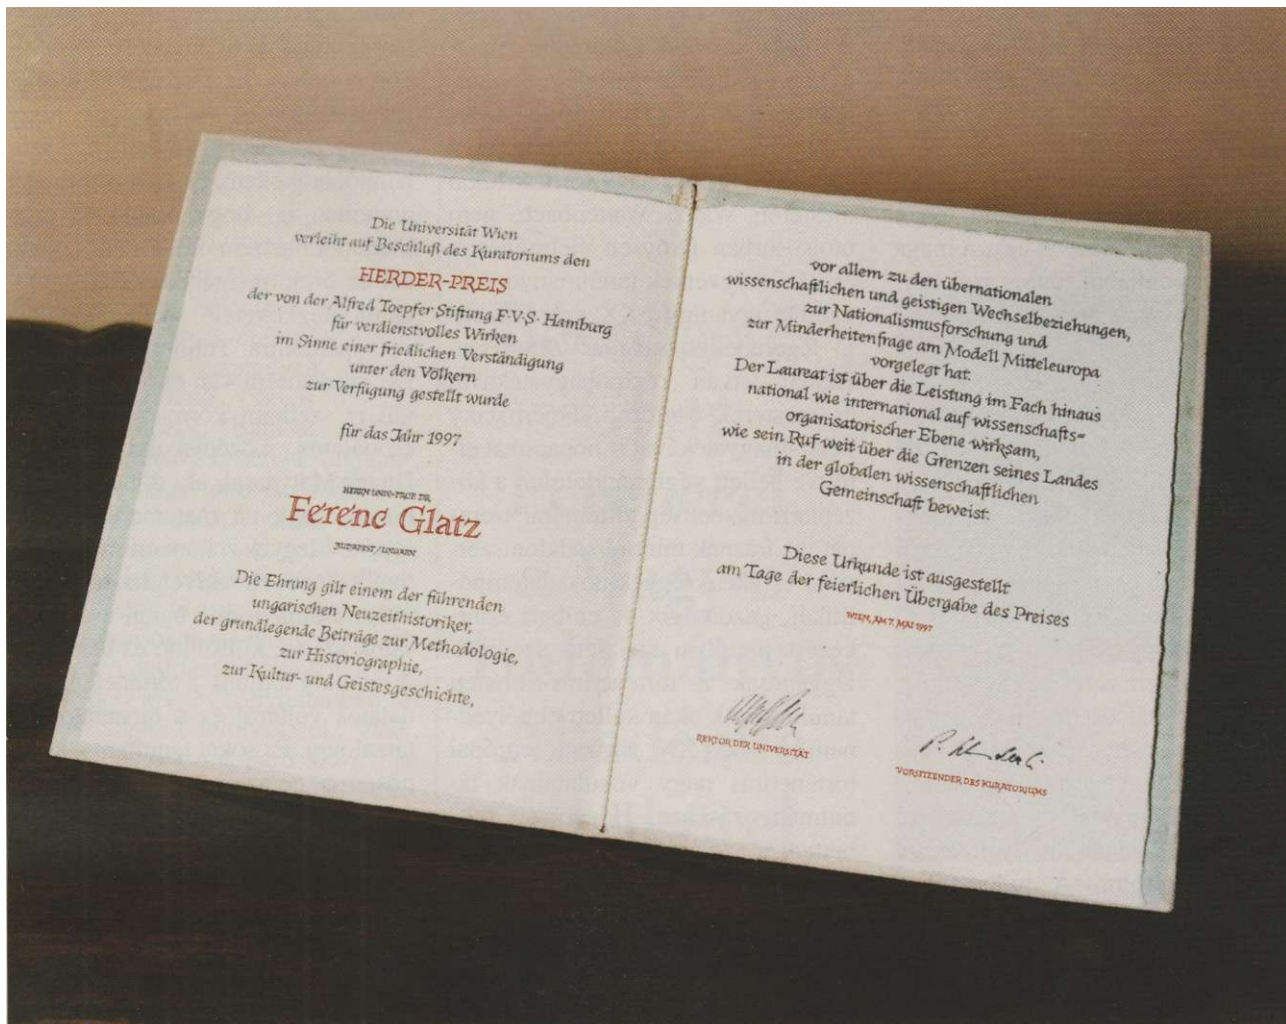 Die Universität Wien
verleiht auf Beschluß des Kuratoriums den
HERDER-PREIS
der von der Alfred Toepfer Stiftung F·V·S· Hamburg
für verdienstvolles Wirken
im Sinne einer friedlichen Verständigung
unter den Völkern
zur Verfügung gestellt wurde
für das Jahr 1997
HERRN UNIV-PROF. DR.
Ferenc Glatz
BUDAPEST/UNGARN
Die Ehrung gilt einem der führenden
ungarischen Neuzeithistoriker,
der grundlegende Beiträge zur Methodologie,
zur Historiographie,
zur Kultur- und Geistesgeschichte,
vor allem zu den übernationalen
wissenschaftlichen und geistigen Wechselbeziehungen,
zur Nationalismusforschung und
zur Minderheitenfrage am Modell Mitteleuropa
vorgelegt hat.
Der Laureat ist über die Leistung im Fach hinaus
national wie international auf wissenschafts=
organisatorischer Ebene wirksam,
wie sein Ruf weit über die Grenzen seines Landes
in der globalen wissenschaftlichen
Gemeinschaft beweist.
Diese Urkunde ist ausgestellt
am Tage der feierlichen Übergabe des Preises
WIEN, AM 7. MAI 1997
REKTOR DER UNIVERSITÄT
VORSITZENDER DES KURATORIUMS